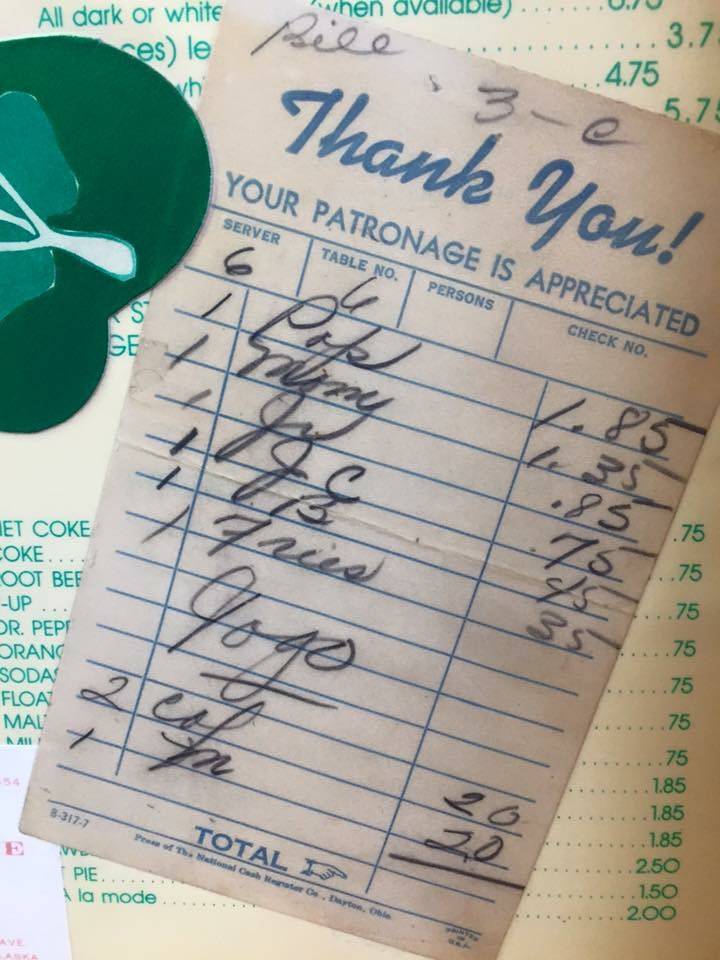 All dark or white (when available) 
3.7
ces) le
4.75
5.75
Bill
3-C
Thank You!
YOUR PATRONAGE IS APPRECIATED
SERVER TABLE NO. PERSONS CHECK NO.
6 6
1 Pop 1.85
1 1.35
1 Jr .85
1 JC .75
1 B 45
1 Fries 35
Yogo
2 cof 20
1 m 20
B-317-7
TOTAL
Press of The National Cash Register Co., Dayton, Ohio
PRINTED IN U.S.A.
IET COKE .75
COKE .75
OOT BEE .75
-UP .75
DR. PEPP .75
ORANG .75
SODA .75
FLOA 1.85
MAL 1.85
MIL 1.85
2.50
PIE 1.50
A la mode 2.00
54
E
AVE
LASKA